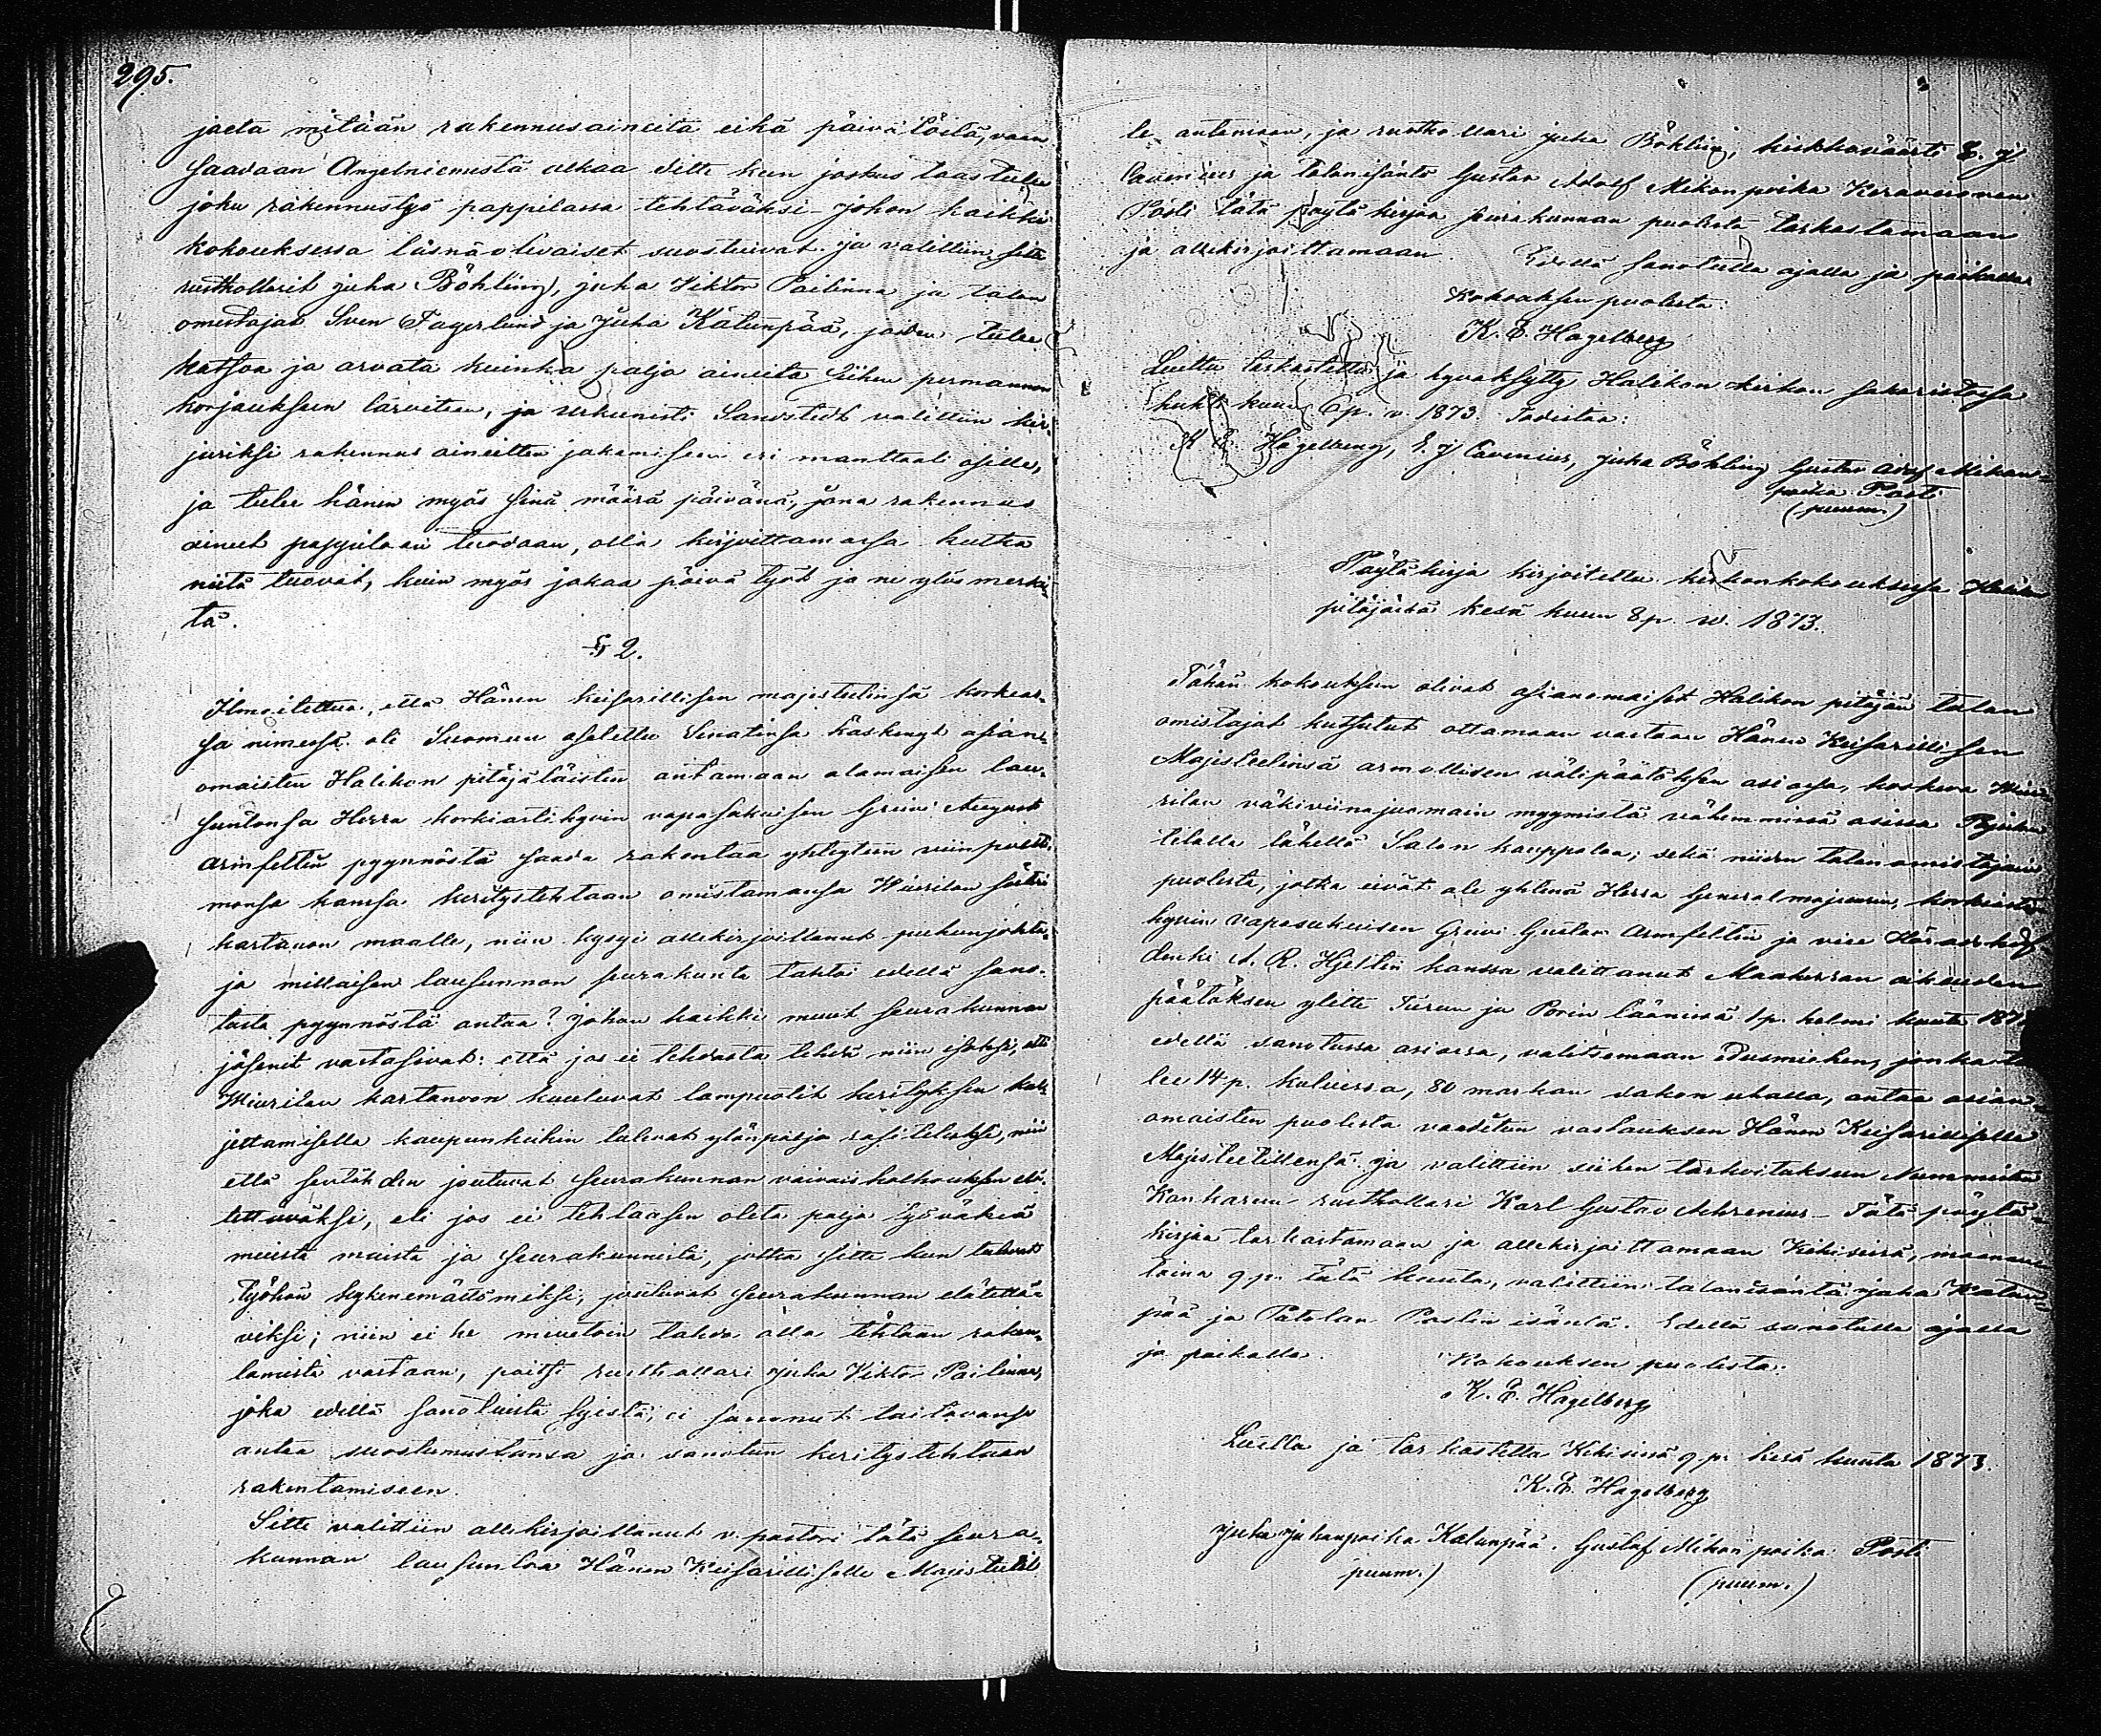 295.
jaeta mitään rakennusaineita eikä päivätöitä, vaan
saavaan Angelniemestä alkaa sitte kun joskus taas tulee
joku rakennustyö pappilassa tehtäväksi – johon kaikki
kokouksessa läsnäolevaiset suostuivat ja valittiin sitte
rusthollarit Juha Böhling, Juha Viktor Pailinna ja talon
omistajat Sven Fagerlund ja Juha Katunpää, joiden tulee
katsoa ja arvata kuinka paljo aineita siihen permannon
korjaukseen tarvitaan, ja urkunisti Sandstedt valittiin kir-
juriksi rakennus aineitten jakamiseen eri manttaali osille,
ja tulee hänen myös sinä määrä päivänä, jona rakennus
aineet pappilaan tuodaan, olla kirjoittamassa kutka
niitä tuovat, kuin myös jakaa päivä työt ja ne ylös merki-
tä.
§ 2.
Ilmoitettua, että Hänen keisarillisen majesteetinsä korkeas-
sa nimessä oli Suomeen asetettu Senatinsa käskenyt asian-
omaisten Halikon pitäjäläisten antamaan alamaisen lau-
suntonsa Herra korkiastihyvin vapasukuisen Greivi August
Armfeltin pyynnöstä saada rakentaa yhtiytein viinpolti-
monsa kanssa keritystehtaan omistamansa Wiurilan säteri
kartanon maalle, niin kysyi allekirjoittanut puheenjohta-
ja millaisen lausunnon seurakunta tahtoi edellä sano-
tusta pyynnöstä antaa? Johon kaikki muut seurakunnan
jäsenet vastasivat: että jos ei tehdasta tehdä niin isoksi, että
Wiurilan kartanoon kuuluvat lampuotit kerityksen kul-
jettamisella kaupunkihin tulevat ylönpaljo rasitetuksi, niin
että sentähden joutuvat seurakunnan vaivaishoitouksen elä-
tettäväksi, eli jos ei tehtaasen oteta paljo työväkeä
muista maista ja seurakunneista, jotka sitte kun tulevat
työhön kykenemättömiksi, joutuvat seurakunnan elätettä-
viksi; niin ei he muutoin tahdo olla tehtaan raken-
tamista vastaan, paitsi rusthollari Juha Viktor Pailinna,
joka edellä sanotuista syistä, ei sanonut taitavansa
antaa suostumustansa ja sanotun keritystehtaan
rakentamiseen.
Sitte valittiin allekirjoittanut v. pastori tätä seura-
kunnan lausuntoa Hänen Keisarilliselle Majesteetil
le antamaan, ja rusthollari Juha Böhling, kirkkoväärti E. J
Cavenius ja talonisäntä Gustav Adolf Mikonpoika
Posti tätä pöytäkirjaa seurakunnan puolesta tarkastamaan
ja allekirjoittamaan. Edellä sanotulla ajalla ja paikalla.
Kokouksen puolesta:
K. E. Hagelberg
Luettu tarkastettu ja hyväksytty Halikon kirkon sakaristossa
huhti kuun 6 p. v. 1873. Todistaa:
K E Hagelberg, E. J Cavenius, Juha Böhling Gustav Adolf Mikon-
poika Posti
(puum.)
Pöytäkirja kirjoitettu kirkonkokouksessa Halikon
pitäjässä kesä kuun 8 p. v. 1873.
Tähän kokouksen olivat asianomaiset Halikon pitäjän talon
omistajat kutsutut ottamaan vastaan Hänen Keisarillisen
Majesteetinsä armollisen välipäätöksen asiassa, koskeva Wiu-
rilan väkiviinajuomain myymistä vähemmissä osissa
tilalla lähellä Salon kauppalaa; sekä niiden talonomistajain
puolesta, jotka eivät ole yhtenä Herra Generalmajuurin, korkiasti
hyvin vapasukuisen Greivi Gustav Armfeltin ja vice Häradshöf-
dinki A. R. Hjeltin kanssa valittanut Maaherran oikeuden
päätöksen ylitte Turun ja Porin läänissä 1 p. helmi kuuta 187
edellä sanotussa asiassa, valitsemaan edusmiehen, jonka tu-
lee 14 p. kuluessa, 80 markan sakon uhalla, antaa asian-
omaisten puolesta vaaditun vastauksen Hänen Keisarilliselle
Majesteetillensä. Ja valittiin siihen tarkoitukseen Nummisten
Kankareen rusthollari Karl Gustav Ahrenius – Tätä pöytä-
kirjaa tarkastamaan ja allekirjoittamaan Kihisissä, maanan-
taina 9 p. tätä kuuta, valittiin talonisäntä Juha Katun-
pää ja Patolan Postin isäntä. Edellä sanotulla ajalla
ja paikalla. Kokouksen puolesta:
K. E. Hagelberg
Luettu ja tarkastettu Kihisissä 9 p. kesä kuuta 1873.
K. E. Hagelberg
Juha Juhanpoika Katunpää. Gustaf Mikon poika Posti
puum.) (puum.)